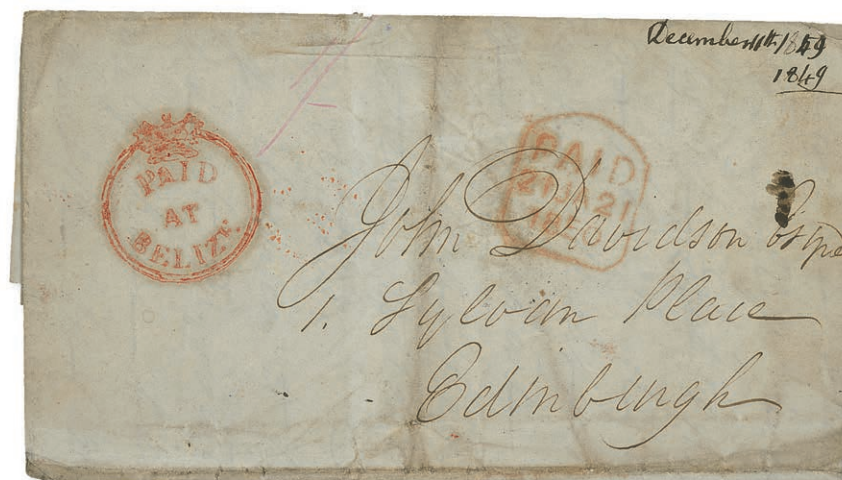 December 11th 1849
1849
PAID
AT
BELIZE
PAID
21
John Davidson Esqre
1. Sylvan Place
Edinburgh